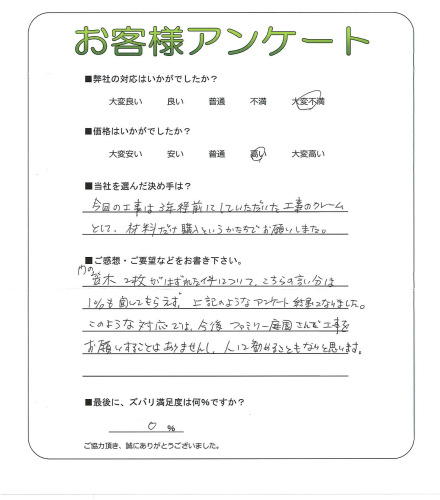 お客様アンケート
■弊社の対応はいかがでしたか？
大変良い 良い 普通 不満 大変不満
■価格はいかがでしたか？
大変安い 安い 普通 高い 大変高い
■当社を選んだ決め手は？
今回の工事は3年程前にしていただいた工事のクレーム
として、材料だけ購入というかたちでお願いしました。
■ご感想・ご要望などをお書き下さい。
門の
笠木 2枚がはずれた件について、こちらの言い分は
1%も聞いてもらえず、上記のようなアンケート結果になりました。
このような対応では、今後ファミリー庭園さんで工事を
お願いすることはありませんし、人に勧めることもないと思います。
■最後に、ズバリ満足度は何%ですか？
0 %
ご協力頂き、誠にありがとうございました。